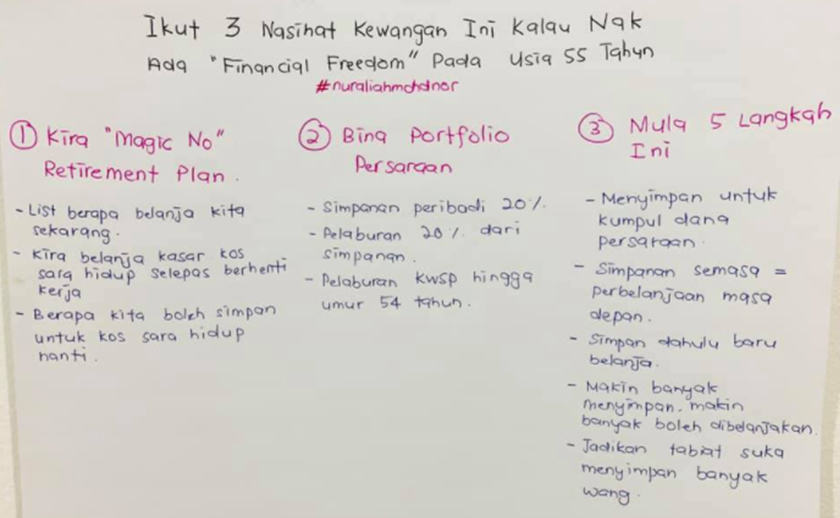 Ikut 3 Nasihat Kewangan Ini Kalau Nak
Ada "Financial Freedom" Pada Usia 55 Tahun
#nuraliahmohdnor
① Kira "Magic No"
Retirement Plan.
- List berapa belanja kita
sekarang.
- Kira belanja kasar kos
sara hidup selepas berhenti
kerja
- Berapa kita boleh simpan
untuk kos sara hidup
nanti.
② Bina Portfolio
Persaraan
- Simpanan peribadi 20%.
- Pelaburan 20% dari
simpanan.
- Pelaburan KWSP hingga
umur 54 tahun.
③ Mula 5 Langkah
Ini
- Menyimpan untuk
kumpul dana
persaraan.
- Simpanan semasa =
perbelanjaan masa
depan.
- Simpan dahulu baru
belanja.
- Makin banyak
menyimpan. makin
banyak boleh dibelanjakan.
- Jadikan tabiat suka
menyimpan banyak
wang.